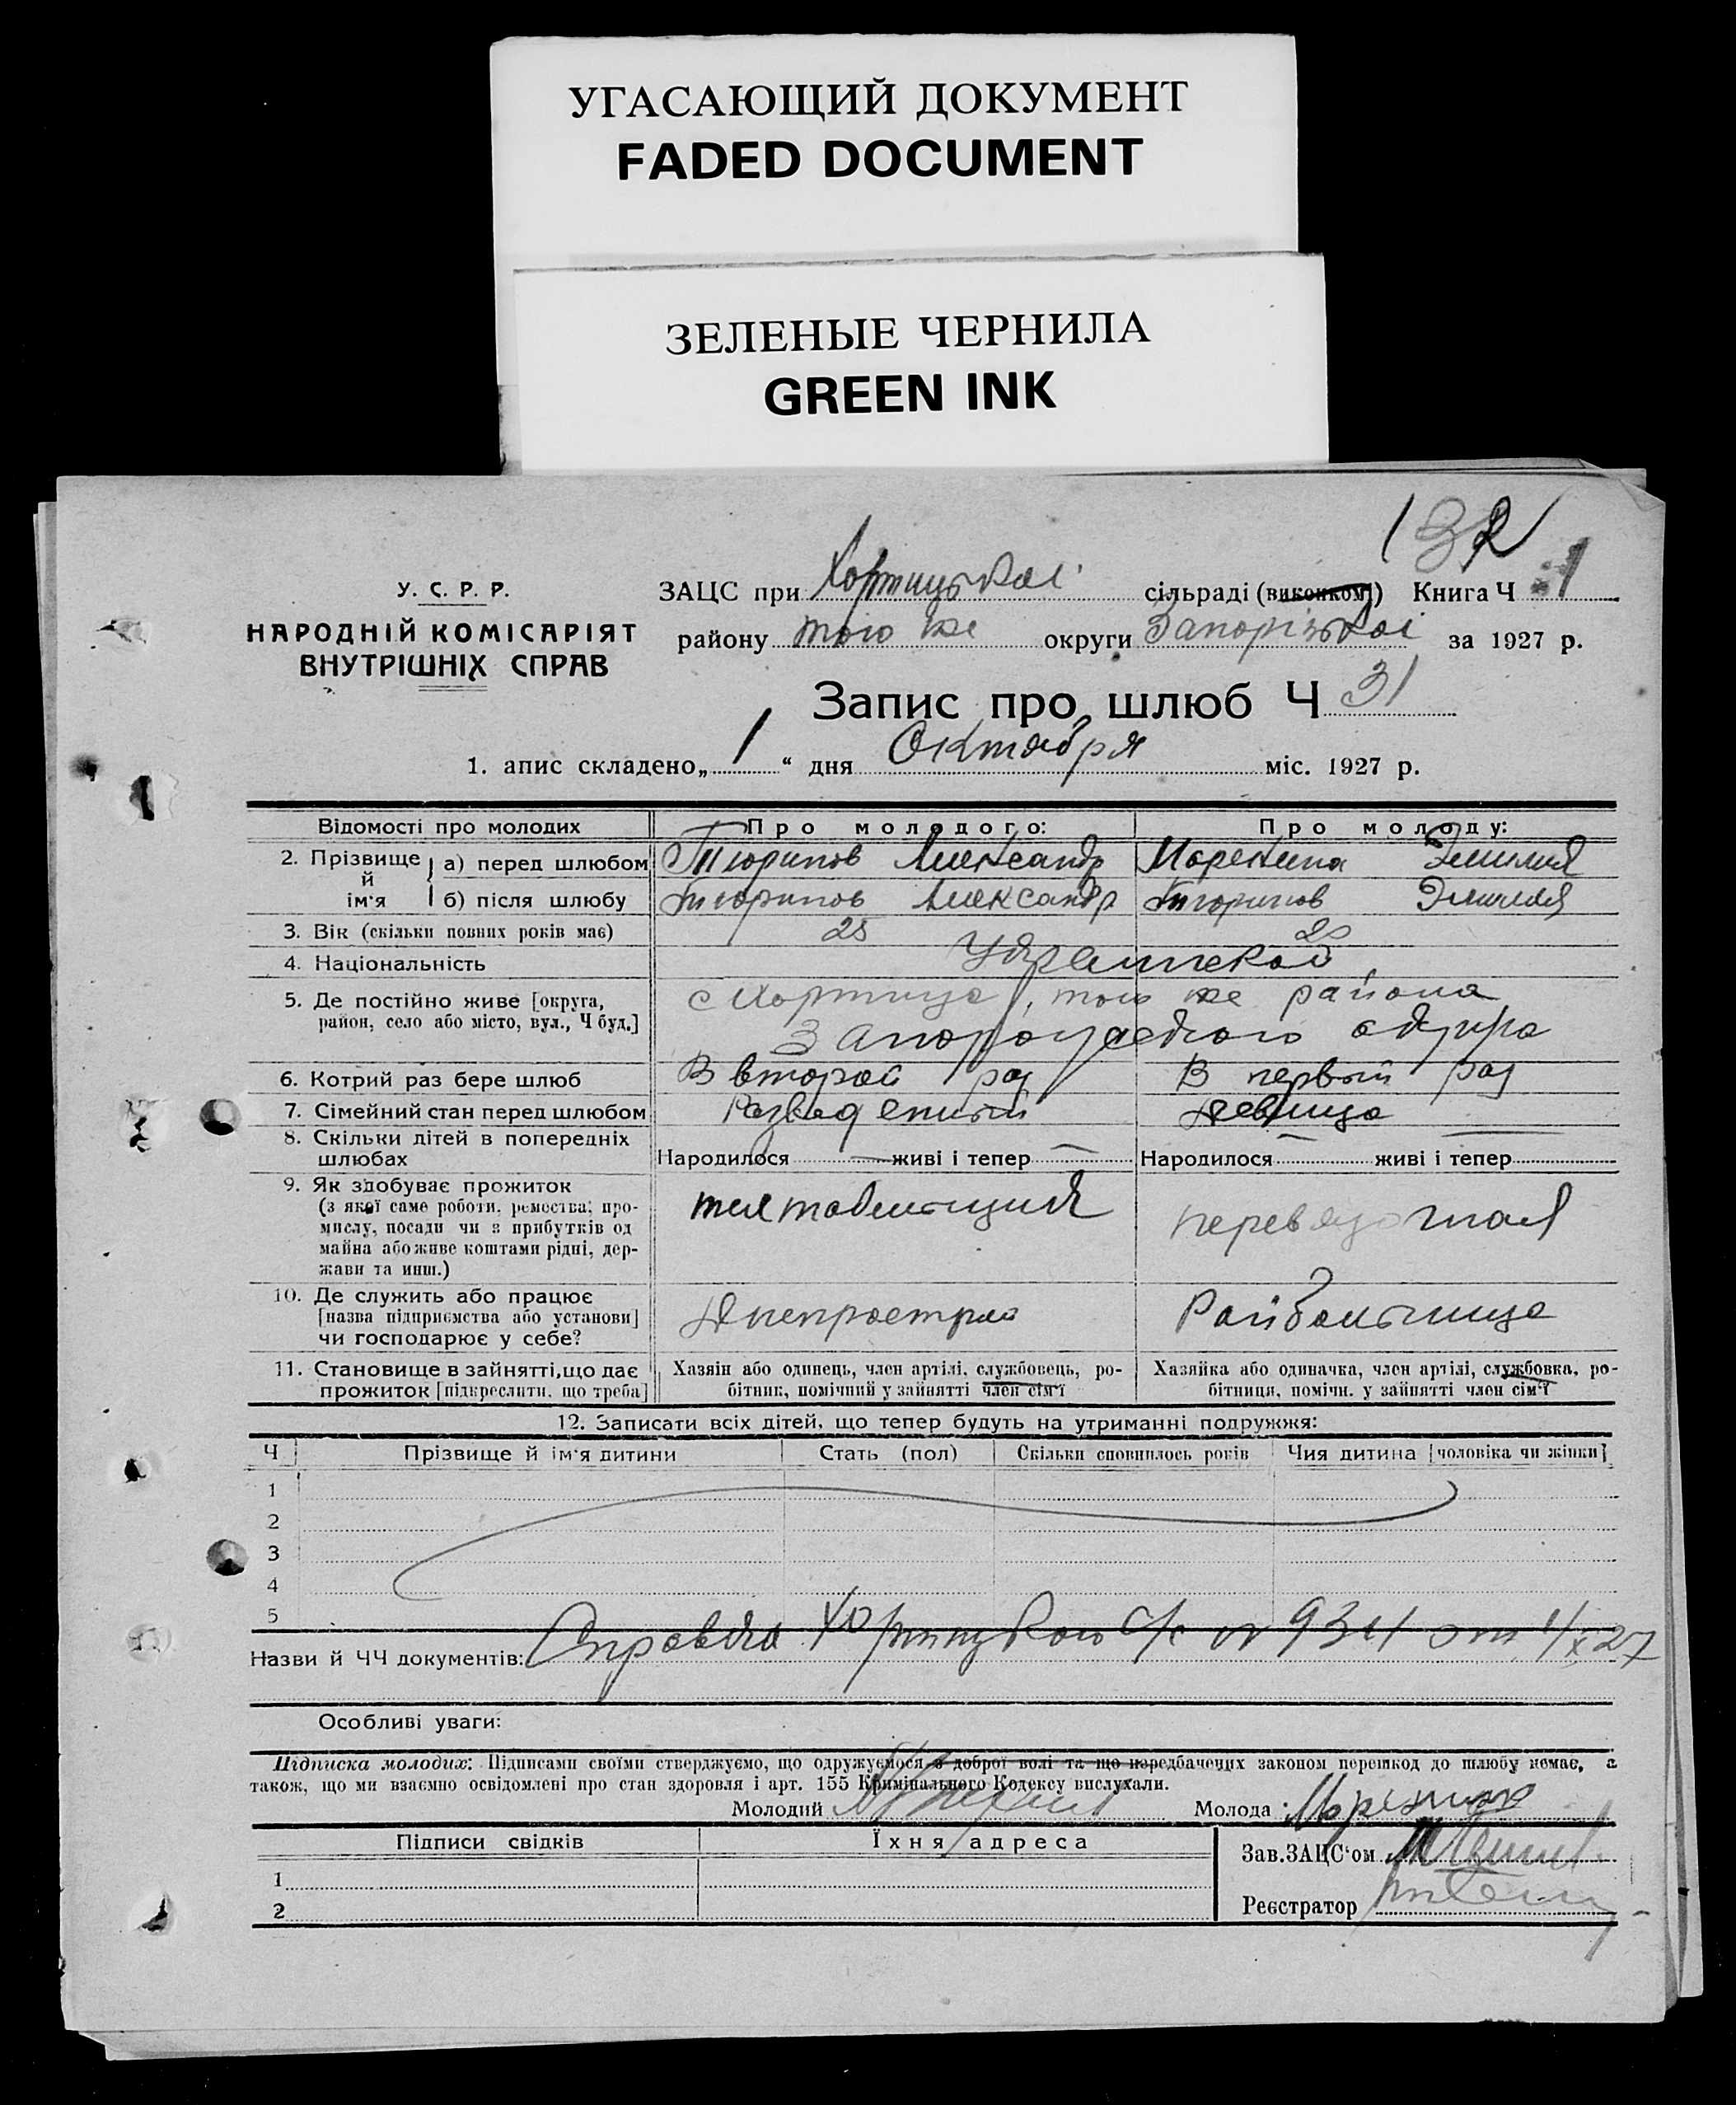 УГАСАЮЩИЙ ДОКУМЕНТ
FADED DOCUMENT
ЗЕЛЕНЫЕ ЧЕРНИЛА
GREEN INK
132
У. С. Р. Р.
НАРОДНІЙ КОМІСАРІЯТ
ВНУТРІШНІХ СПРАВ
ЗАЦС при Хортицькоі сільраді (виконком) Книга Ч 1
району того же округи Запорізькоі за 1927 р.
Запис про шлюб Ч 31
1. апис складено „1“ дня Октября міс. 1927 р.
Відомості про молодих Про молодого: Про молоду:
2. Прізвище й ім'я а) перед шлюбом Александр Эмилия
б) після шлюбу Александр Эмилия
3. Вік (скільки повних років має) 25 20
4. Національність
5. Де постійно живе [округа, с Хортица, того же района
район, село або місто, вул., Ч буд.] Запорожского округа
6. Котрий раз бере шлюб В второй раз В первый раз
7. Сімейний стан перед шлюбом Разведенный Девица
8. Скільки дітей в попередніх
шлюбах Народилося — живі і тепер — Народилося — живі і тепер —
9. Як здобуває прожиток
(з якої саме роботи, ремества, про-
мислу, посади чи з прибутків од
майна або живе коштами рідні, дер-
жави та инш.)
перевязочная
10. Де служить або працює
[назва підприємства або установи]
чи господарює у себе?
Днепрострой Райбольница
11. Становище в зайнятті, що дає
прожиток [підкреслити, що треба]
Хазяін або одинець, член артілі, службовець, ро-
бітник, помічний у зайнятті член сім'ї
Хазяйка або одиначка, член артілі, службовка, ро-
бітниця, помічн. у зайнятті член сім'ї
12. Записати всіх дітей, що тепер будуть на утриманні подружжя:
Ч Прізвище й ім'я дитини Стать (пол) Скільки сповнилось років Чия дитина [чоловіка чи жінки]
1
2
3
4
5
Назви й ЧЧ документів: Справка Хортицкого с/с от 1/X 27
Особливі уваги:
Підписка молодих: Підписами своїми стверджуємо, що одружуємося з доброї волі та що передбачених законом перешкод до шлюбу немає, а
також, що ми взаємно освідомлені про стан здоровля і арт. 155 Кримінального Кодексу вислухали.
Молодий Молода
Підписи свідків Їхня адреса
1
2
Зав.ЗАЦС'ом
Реєстратор